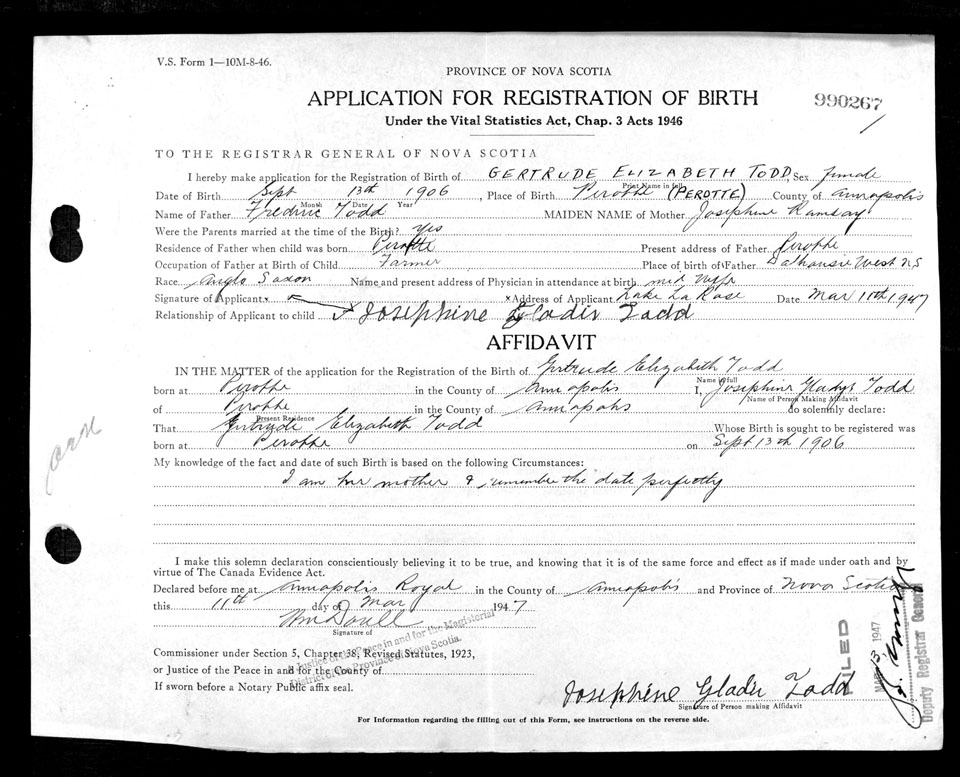 V.S. Form 1—10M-8-46.
PROVINCE OF NOVA SCOTIA
APPLICATION FOR REGISTRATION OF BIRTH
990267
Under the Vital Statistics Act, Chap. 3 Acts 1946
TO THE REGISTRAR GENERAL OF NOVA SCOTIA
I hereby make application for the Registration of Birth of GERTRUDE ELIZABETH TODD, Sex female
Print Name in full
Date of Birth Sept 13th 1906, Place of Birth Perotte (PEROTTE) County of Annapolis
Month Date Year
Name of Father Fredric Todd MAIDEN NAME of Mother Josephine Ramsay
Were the Parents married at the time of the Birth? yes
Residence of Father when child was born Perotte Present address of Father Perotte
Occupation of Father at Birth of Child Farmer Place of birth of Father Dalhousie West N.S
Race Anglo Saxon Name and present address of Physician in attendance at birth mid wife
Signature of Applicant x x Address of Applicant Lake La Rose Date Mar 11th 1947
Relationship of Applicant to child x Josephine Gladis Todd
AFFIDAVIT
IN THE MATTER of the application for the Registration of Birth of Gertrude Elizabeth Todd
Name in full
born at Perotte in the County of Annapolis I, Josephine Gladys Todd
Name of Person Making Affidavit
of Perotte in the County of Annapolis do solemnly declare:
Present Residence
That Gertrude Elizabeth Todd Whose Birth is sought to be registered was
born at Perotte on Sept 13th 1906
My knowledge of the fact and date of such Birth is based on the following Circumstances:
I am her mother & remember the date perfectly
I make this solemn declaration conscientiously believing it to be true, and knowing that it is of the same force and effect as if made under oath and by
virtue of The Canada Evidence Act.
Declared before me at Annapolis Royal in the County of Annapolis and Province of Nova Scotia
this 11th day of Mar 1947
Signature of
Justice of the Peace in and for the Magisterial
District of the Province of Nova Scotia.
Commissioner under Section 5, Chapter 38, Revised Statutes, 1923,
or Justice of the Peace in and for the County of
If sworn before a Notary Public affix seal.
Josephine Gladis Todd
Signature of Person making Affidavit
For Information regarding the filling out of this Form, see instructions on the reverse side.
FILED
MAR 13 1947
Deputy Registrar General